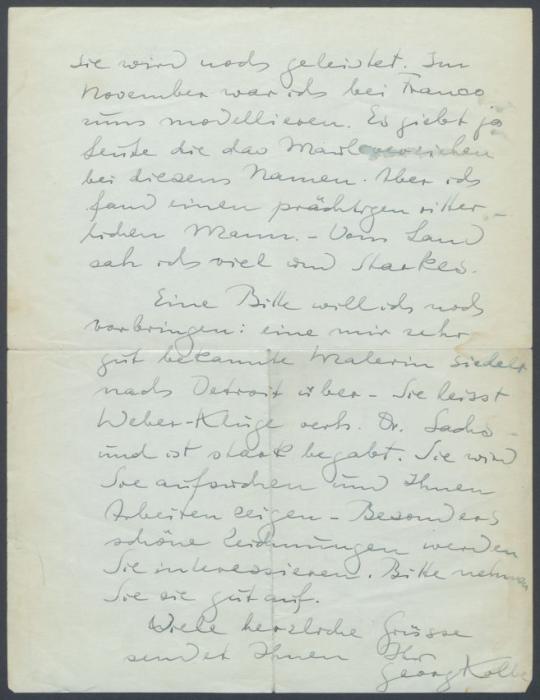 sie wird noch geleistet. Im
November war ich bei Franco
zum modellieren. Es giebt ja
Leute die das Maul verziehen
bei diesem Namen. Aber ich
fand einen prächtigen ritter-
lichen Mann. – Vom Land
sah ich viel und Starkes.
Eine Bitte will ich noch
vorbringen: eine mir sehr
gut bekannte Malerin siedelt
nach Detroit über – Sie heisst
Weber-Kluge verh. Dr. Sachs –
und ist stark begabt. Sie wird
Sie aufsuchen und Ihnen
Arbeiten zeigen – Besonders
schöne Zeichnungen werden
Sie interessieren. Bitte nehmen
Sie sie gut auf.
Viele herzliche Grüsse
sendet Ihnen Ihr
Georg Kolbe